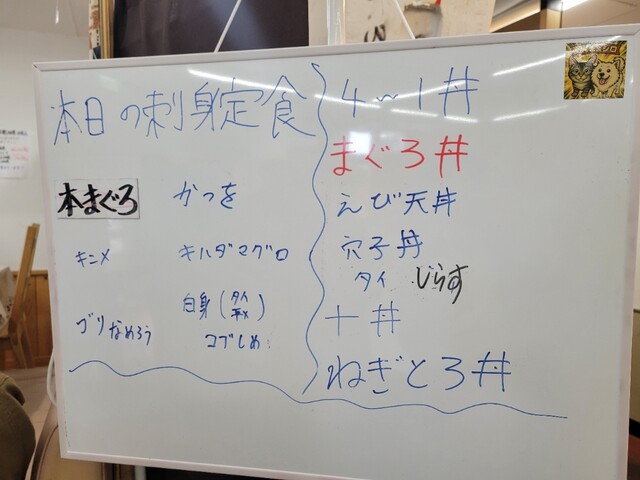 本日の刺身定食
本まぐろ かつを
キンメ キハダマグロ
白身(タイ
ブリなめろう コブじめ
4~1丼
まぐろ丼
えび天丼
穴子丼
タイ しらす
十丼
ねぎとろ丼